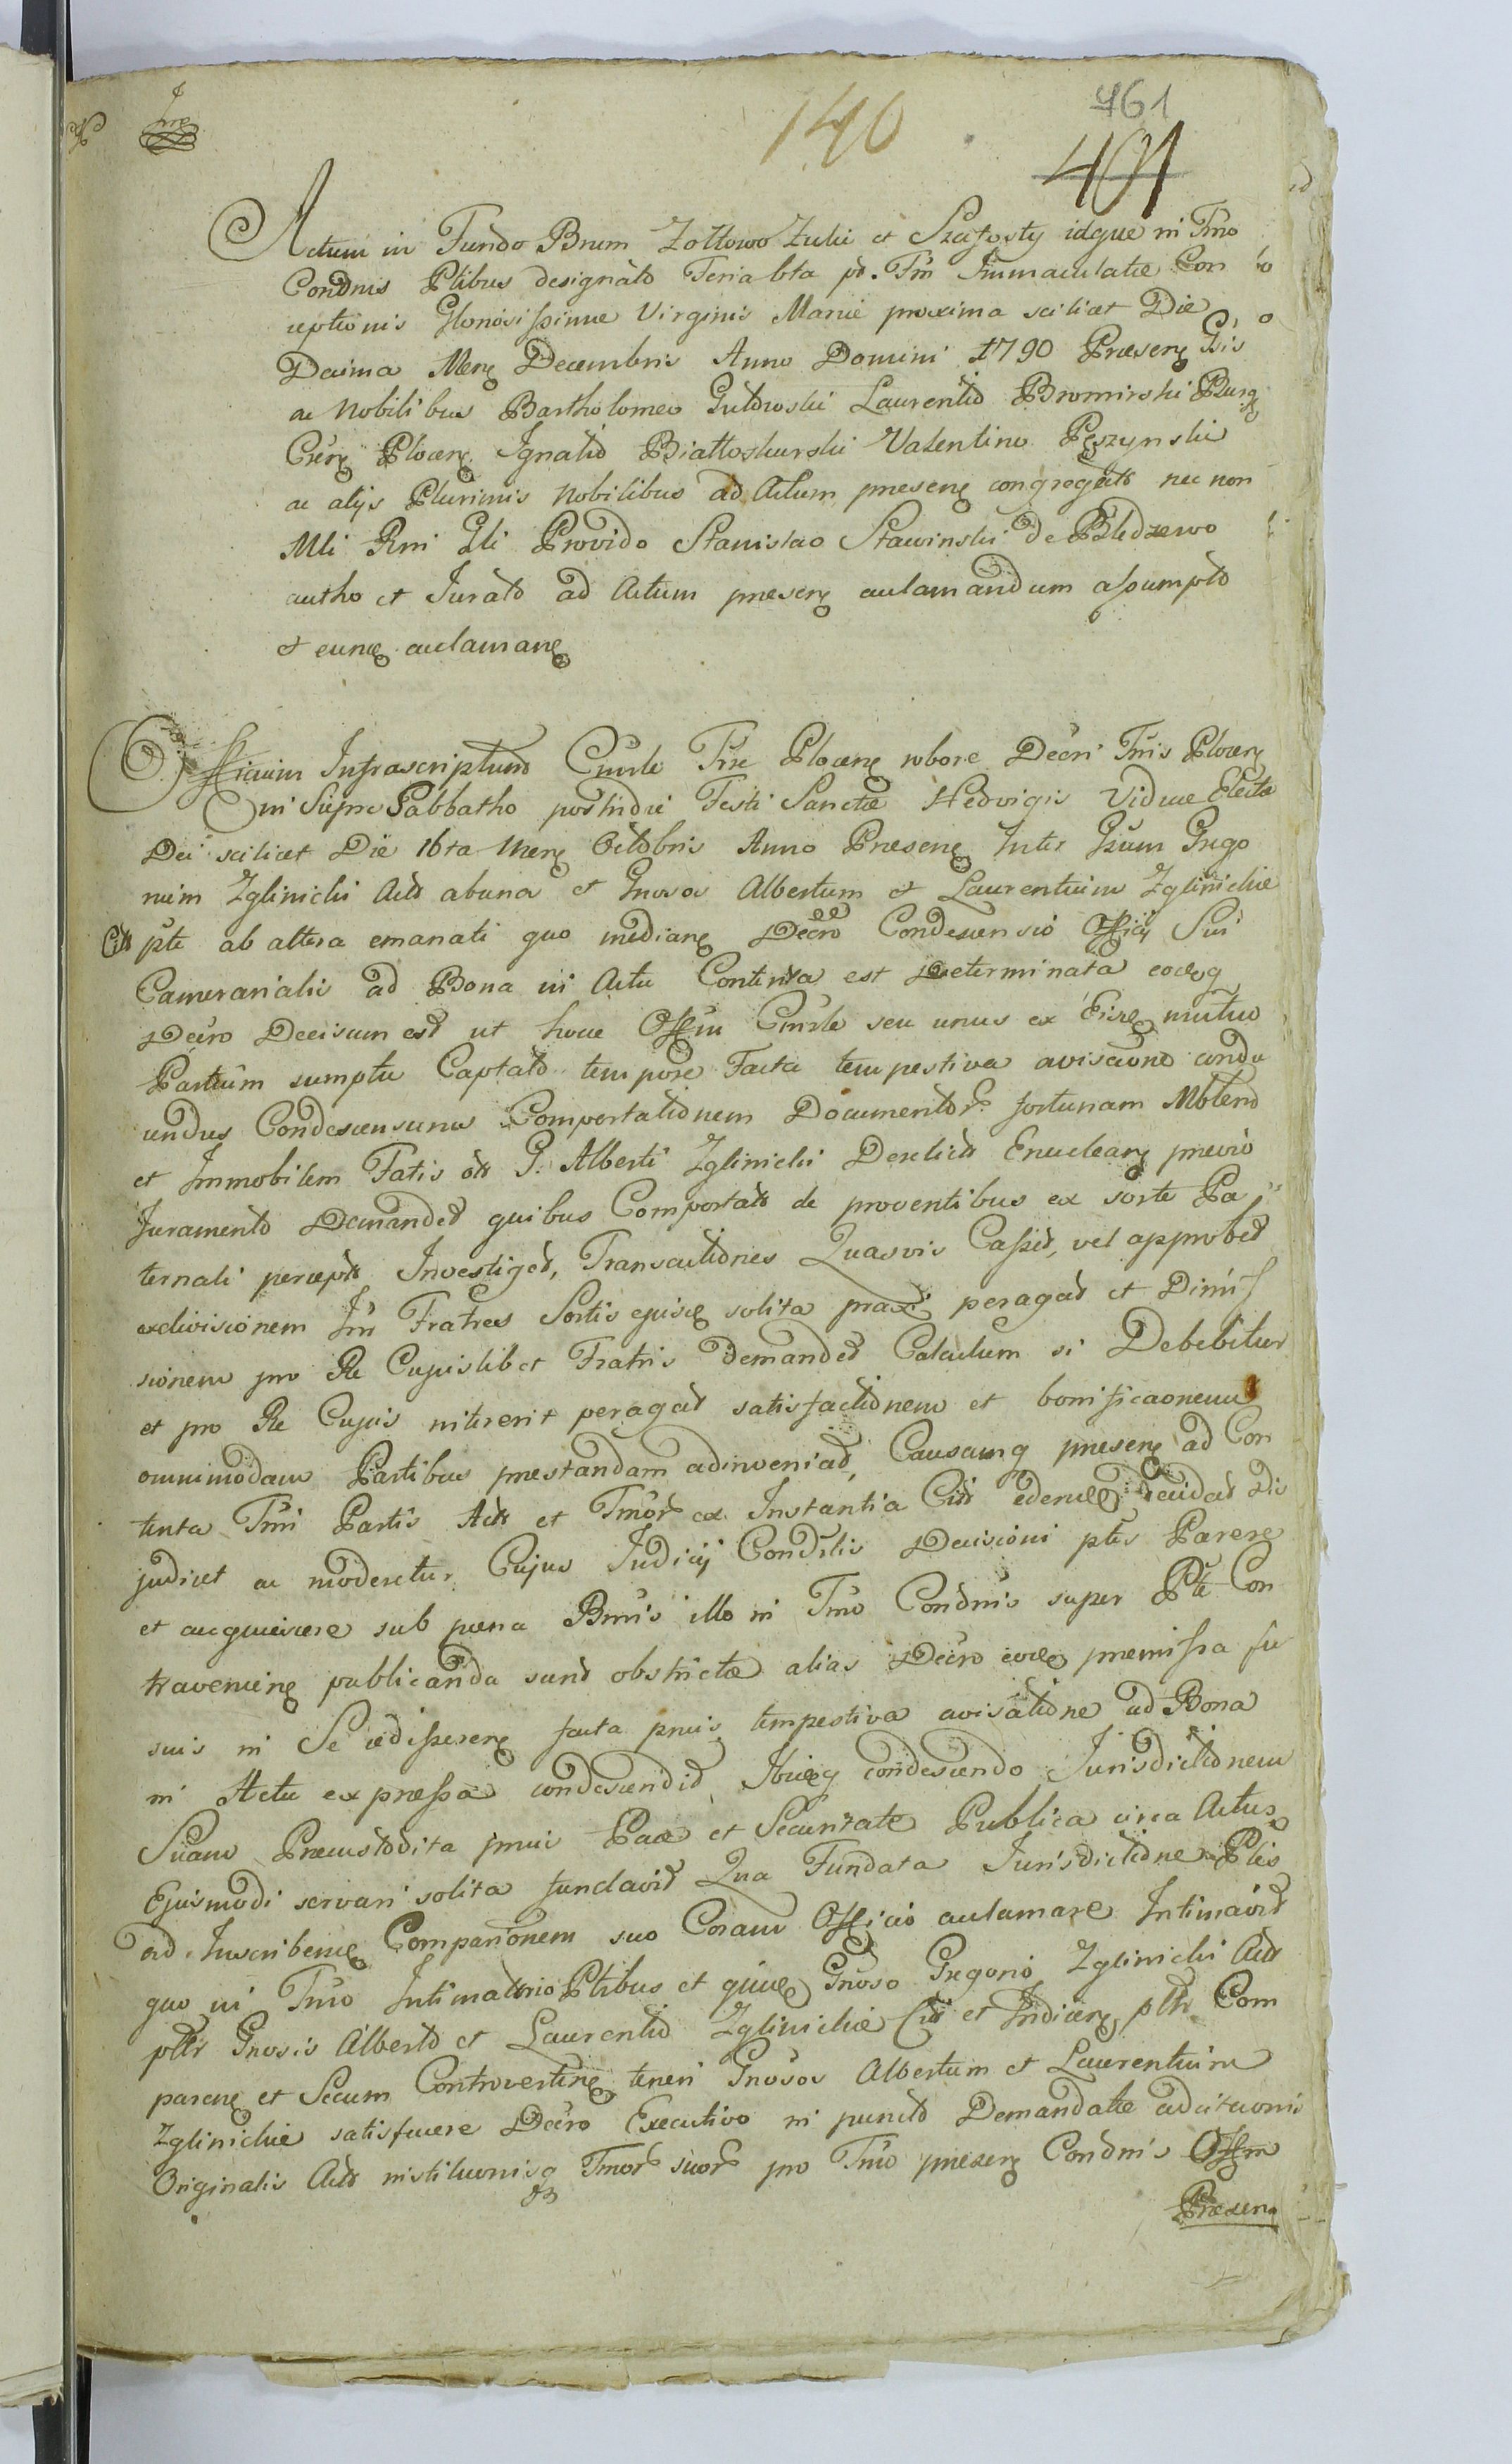 140
761
401
Actum in Fundo Bnum Zottowo Zulii et idque in Tmo
Condnis Ptibus designato Feria 6ta pt. Fm Immaculatæ Con
ceptionis Gloriosissimæ Virginis Mariæ proxima scilicet Die
Decima Mens Decembris Anno Domini 1790 Præsens Gsis
ac Nobilibus Bartholomeo Gutkowski Laurentio Bromirski Burg
Cren Plocen Ignatio Białłoskurski Valentino Pęszynski
ac alijs Plurimis Nobilibus ad Actum præsens congregats nec non
Mli Rni Gli Provido Stanislao Stawinski de Bledzewo
autho et Jurato ad Actum præsens acclamandum assumpto
et eunq acclamans
Officium Infrascriptum Cmrle Trræ Plocens robore Decri Tris Plocens
in Siepre Sabbatho postridie Festi Sanctæ Hedvigis Viduæ Electæ
Dei scilicet Die 16ta Mens Octobris Anno Præsens Inter Gsum Grego
rium Zglinicki Act ab una et Gnosos Albertum et Laurentium Zglinickie
Citt pte ab altera emanati quo medians Decro Condescensio Officij Sui
Camerarialis ad Bona in Actu Contenta est Determinata eoq
Decro Decisum est ut hocce Offm Cmrle seu unus ex Eisd mutuo
Partium sumptu Captato tempore Facta tempestiva avisaone conde
undus Condescensurus Comportationem Documentor fortunam Mbilem
et Immobilem Fatis olt G. Alberti Zglinicki Derelict Enuclears prævio
Juramento Demandet quibus Comportats de proventibus ex sorte Pa
ternali percepts Investiget, Transactiones Quasvis Casset, vel approbet
exdivisionem Inr Fratres Sortis ejusd solita praxi peragat et Dimis
sionem pro Re Cujuslibet Fratris demandet Calculum si Debebitur
et pro Re Cujus nitererit peragat satisfactionem et bonificaonem
omnimodam Partibus præstandam adinveniat, Causamq præsens ad Con
tenta Tmi Partis Act et Tmor ex Instantia Citt edend decidat Dis
judicet ac moderetur Cujus Judicij Condrlis Decisioni ptes Parere
et acquiescere sub pœna Bmis illo in Tmo Condnis super Pte Con
travenieng publicanda sunt obstrictæ alias Decro eod præmissa fu
sius in Se edisserens facta prius tempestiva avisatione ad Bona
in Actu expressa condescendit, Ibidq condescendo Jurisdictionem
Suam Præcustodita prius Pace et Securitate Publica circa Actus
Ejusmodi servari solita fundavit Qua Fundata Jurisdictione Ptes
ad Inscribend Comparionem suo Coram Officio acclamare Intimavit
quo in Tmo Intimatorio Ptibus et quid Gnoso Gregorio Zglinicki Act
pltr Gnosis Alberto et Laurentio Zglinickie Citt et Indicens pltr Com
parens et Secum Controvertens teneri Gnosos Albertum et Laurentium
Zglinickie satisfacere Decro Executivo in puncto Demandatæ adcitaonis
Originalis Act institueonisq Tmor suor pro Tmo præsens Condnis Offm
Præsens